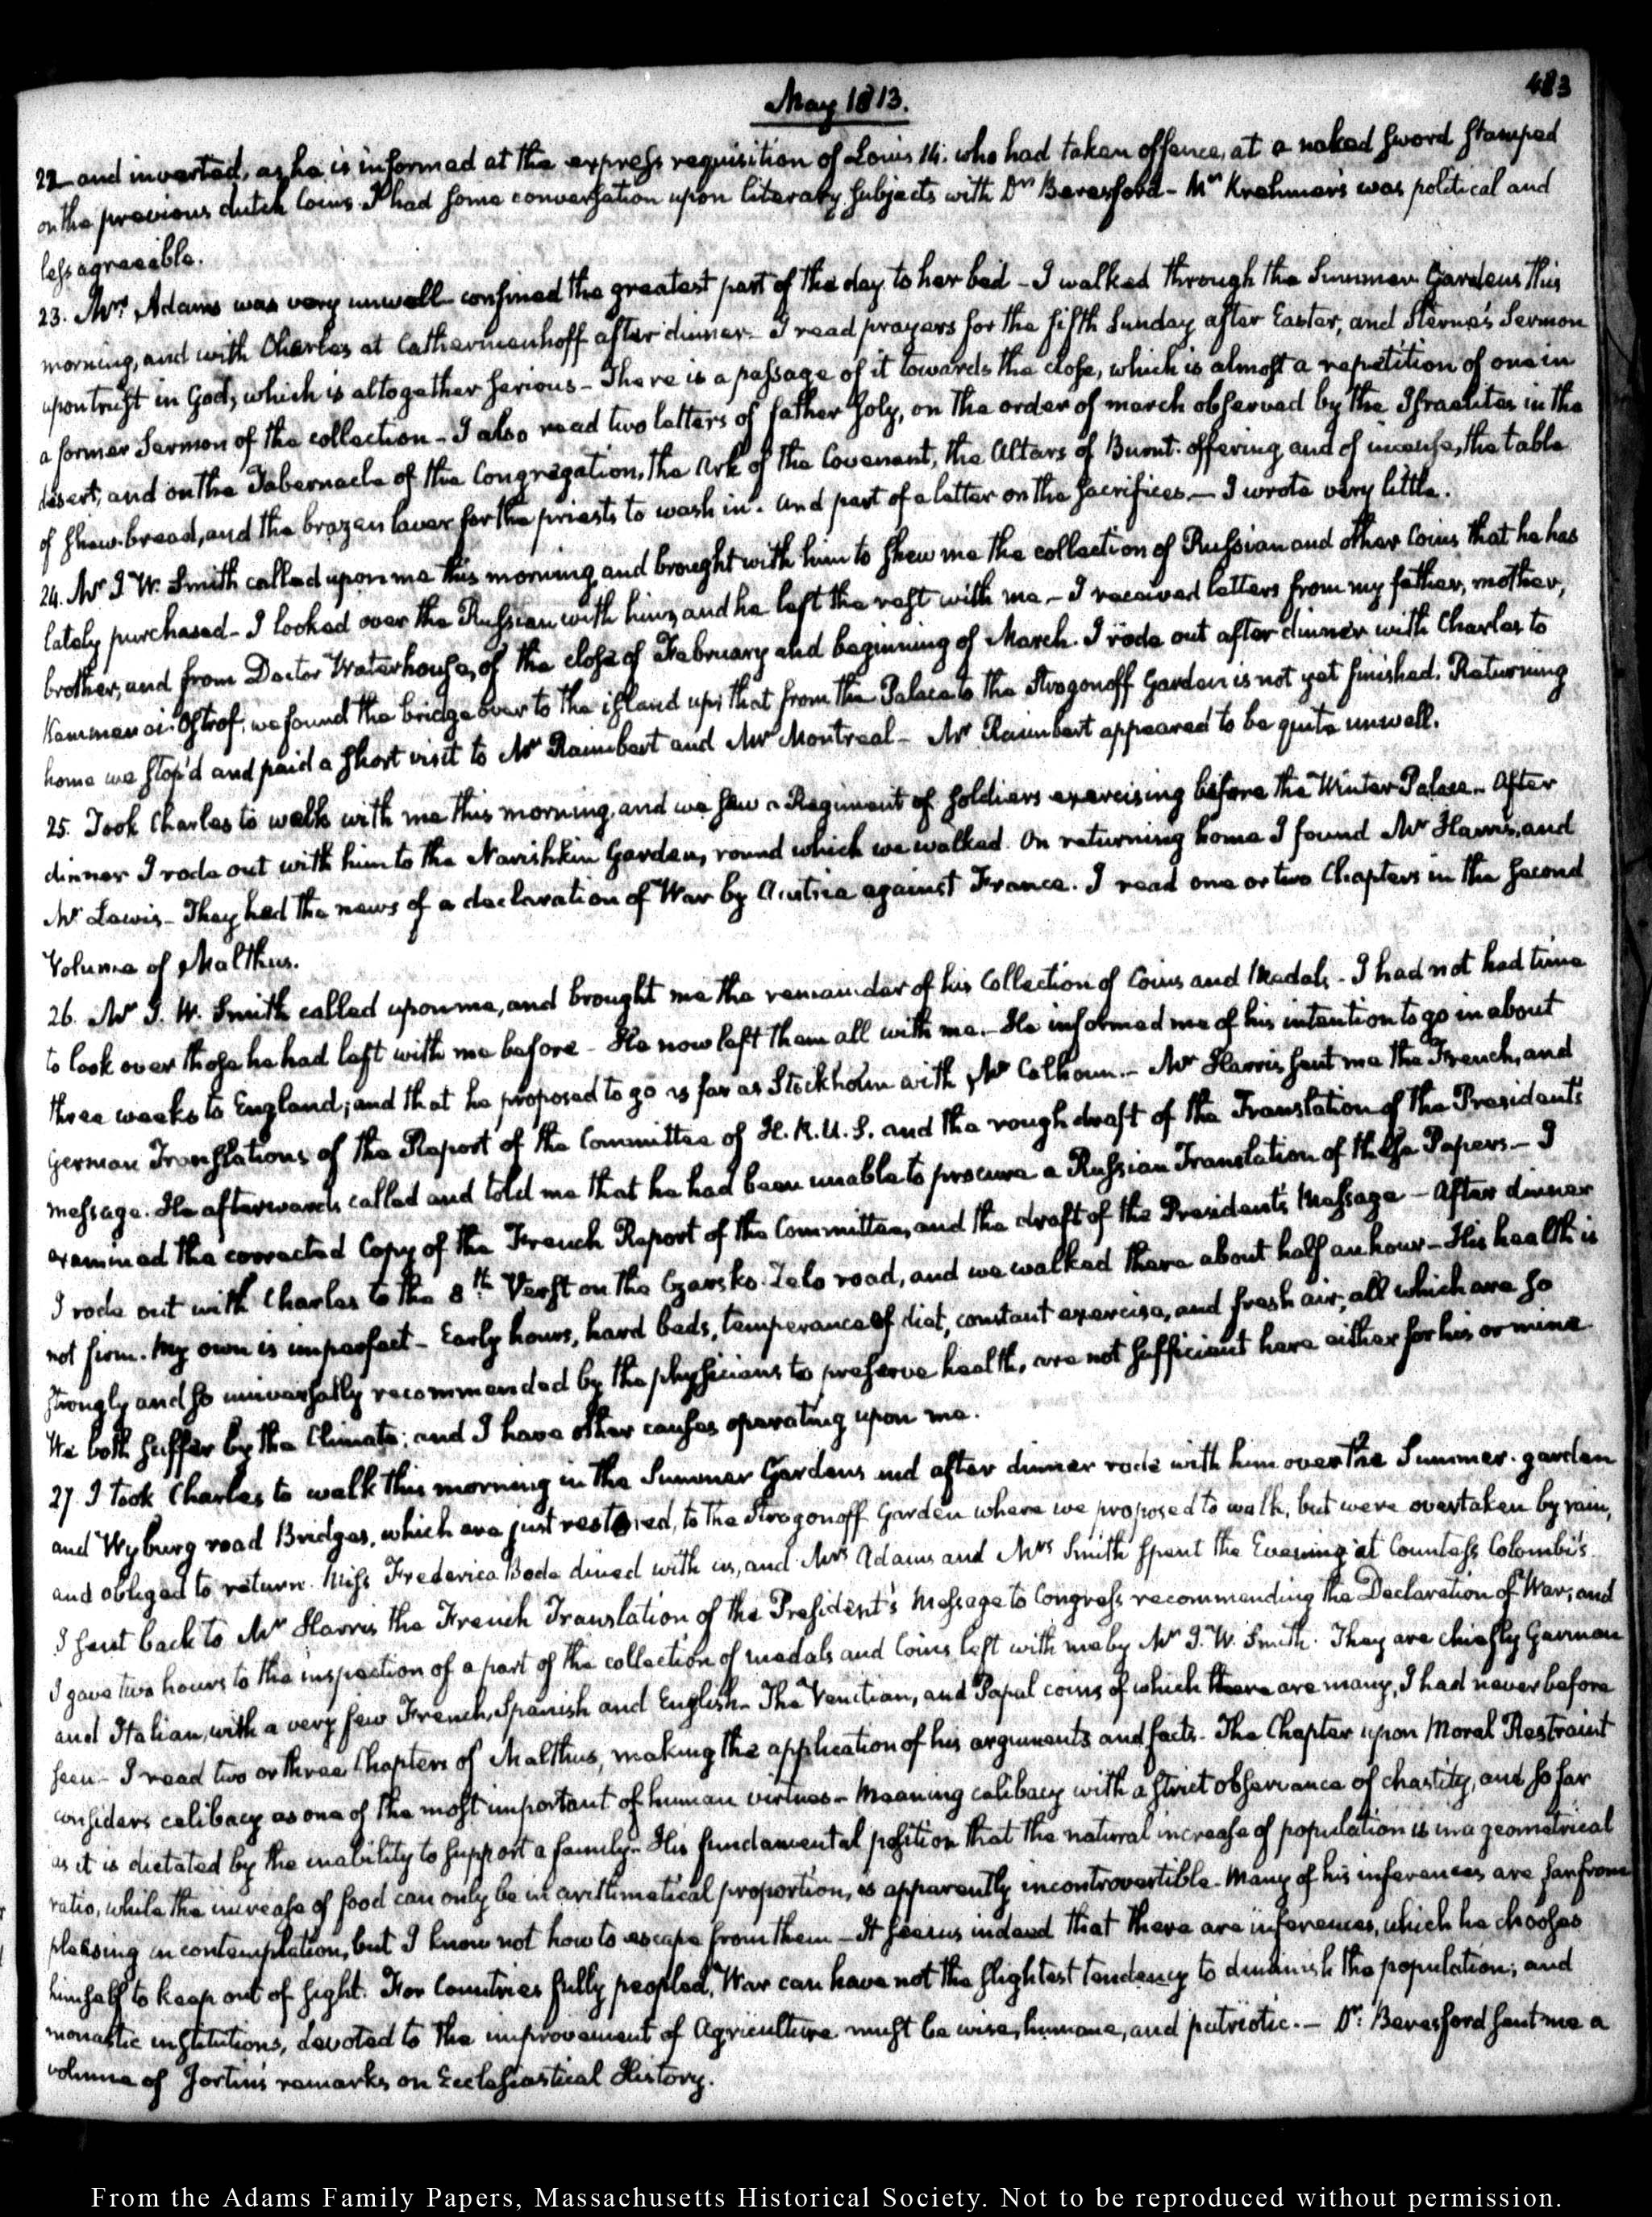 May 1813.
483
22 and inverted, as he is informed at the express requisition of Louis 14. who had taken offence, at a naked sword stamped
on the previous dutch Coins. I had some conversation upon literary subjects with Dr. Beresford - Mr. Krehmer's was political and
less agreeable.
23. Mrs. Adams was very unwell confined the greatest part of the day to her bed - I walked through the Summer Gardens this
morning, and with Charles at Catherinenhoff after dinner - I read prayers for the fifth Sunday after Easter, and Sterne's Sermon
upon trust in God, which is altogether serious - There is a passage of it towards the close, which is almost a repetition of one in
a former Sermon of the collection - I also read two letters of father Joly, on the order of march observed by the Israelites in the
desert, and on the Tabernacle of the Congregation, the Ark of the Covenant, the Altars of Burnt-offering and of incense, the table
of shew-bread, and the brazen laver for the priests to wash in. and part of a letter on the sacrifices. - I wrote very little.
24. Mr. J. W. Smith called upon me this morning, and brought with him to shew me the collection of Russian and other Coins that he has
lately purchased - I looked over the Russian with him, and he left the rest with me - I received letters from my father, mother,
brother, and from Doctor Waterhouse, of the close of February and beginning of March. I rode out after dinner with Charles to
Kammenoi-Ostrof. we found the bridge over to the island up; that from the Palace to the Strogonoff Garden is not yet finished. Returning
home we stop'd and paid a short visit to Mr Raimbert and Mr Montreal - Mr Raimbert appeared to be quite unwell.
25. Took Charles to walk with me this morning, and we saw a Regiment of soldiers exercising before the Winter Palace - After
dinner I rode out with him to the Narishkin Garden, round which we walked. On returning home I found Mr Harris, and
Mr Lewis - They had the news of a declaration of War by Austria against France. I read one or two Chapters in the second
Volume of Malthus.
26. Mr J. W. Smith called upon me, and brought me the remainder of his Collection of Coins and Medals - I had not had time
to look over those he had left with me before - He now left them all with me. - He informed me of his intention to go in about
three weeks to England; and that he proposed to go as far as Stockholm with Mr Calhoun. - Mr Harris sent me the French, and
German Translations of the Report of the Committee of H. R. U. S. and the rough draft of the Translation of the President's
message. He afterwards called and told me that he had been unable to procure a Russian Translation of these Papers. - I
examined the corrected Copy of the French Report of the Committee, and the draft of the President's Message - After dinner
I rode out with Charles to the 8th Verst on the Czarsko-Zelo road, and we walked there about half an hour - His health is
not firm. My own is imperfect - Early hours, hard beds, temperance of diet, constant exercise, and fresh air, all which are so
strongly and so universally recommended by the physicians to preserve health, are not sufficient here either for his or mine
We both suffer by the Climate; and I have other causes operating upon me.
27. I took Charles to walk this morning in the Summer Gardens and after dinner rode with him over the Summer-garden
and Wyburg road Bridges, which are just restored, to the Strogonoff Garden where we proposed to walk, but were overtaken by rain,
and obliged to return. Miss Frederica Bode dined with us, and Mrs Adams and Mrs Smith spent the Evening at Countess Colombi's
I sent back to Mr Harris the French Translation of the President's Message to Congress recommending the Declaration of War; and
I gave two hours to the inspection of a part of the collection of medals and Coins left with me by Mr J. W. Smith. They are chiefly German
and Italian, with a very few French, Spanish and English - The Venetian, and Papal coins of which there are many, I had never before
seen - I read two or three Chapters of Malthus, making the application of his arguments and facts - The Chapter upon Moral Restraint
considers celibacy as one of the most important of human virtues - Meaning celibacy with a strict observance of chastity, and so far
as it is dictated by the inability to support a family - His fundamental position that the natural increase of population is in a geometrical
ratio, while the increase of food can only be in arithmetical proportion, is apparently incontrovertible. Many of his inferences are far from
pleasing in contemplation, but I know not how to escape from them - It seems indeed that there are inferences, which he chooses
himself to keep out of sight. For Countries fully peopled, War can have not the slightest tendency to diminish the population; and
monastic institutions, devoted to the improvement of Agriculture must be wise, humane, and patriotic. - Dr: Beresford sent me a
volume of Jortin's remarks on Ecclesiastical History.
From the Adams Family Papers, Massachusetts Historical Society. Not to be reproduced without permission.